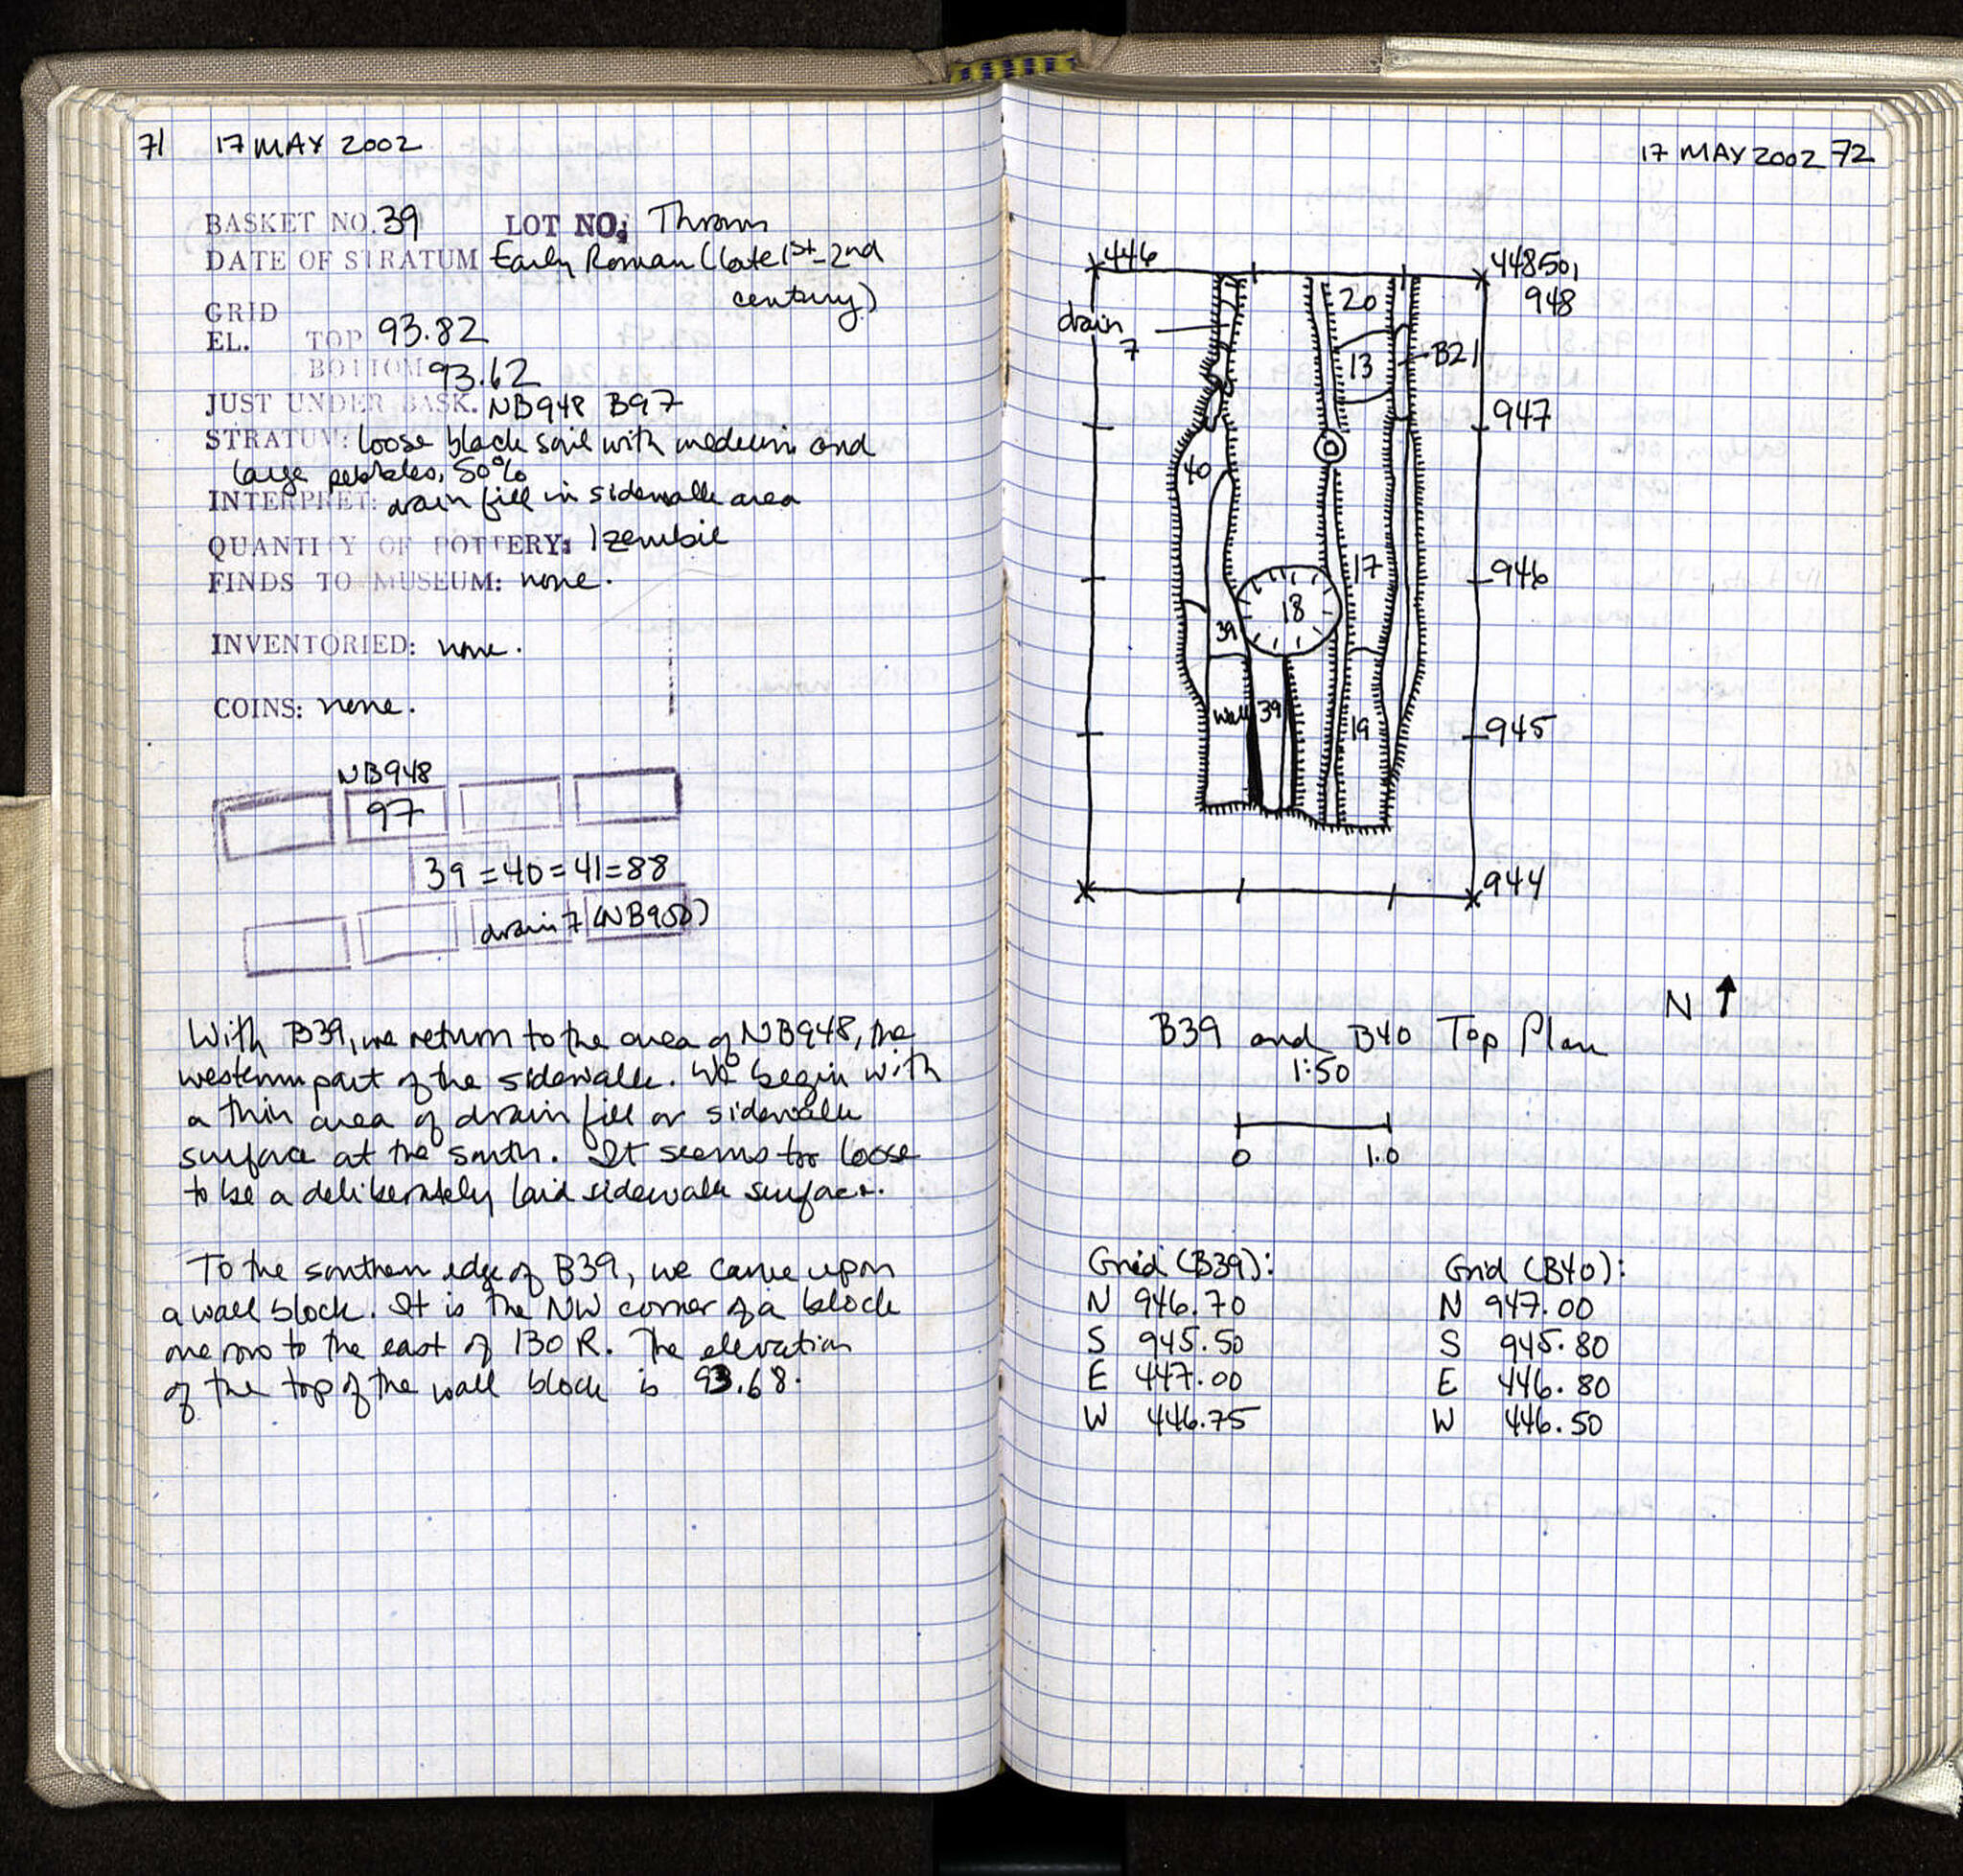 71 17 MAY 2002
BASKET NO. 39 LOT NO: Thrown
DATE OF STRATUM Early Roman (late 1st-2nd
century)
GRID
EL. TOP 93.82
BOTTOM 93.62
JUST UNDER BASK. NB948 B97
STRATUM: loose black soil with medium and
large pebbles, 50%
INTERPRET: drain fill in sidewalk area
QUANTITY OF POTTERY: 1 zembil
FINDS TO MUSEUM: none.
INVENTORIED: none.
COINS: none.
NB948
97
39 = 40 = 41 = 88
drain 7 (NB950)
With B39, we return to the area of NB948, the
western part of the sidewalk. We begin with
a thin area of drain fill or sidewalk
surface at the south. It seems too loose
to be a deliberately laid sidewalk surface.
To the southern edge of B39, we came upon
a wall block. It is the NW corner of a block
one row to the east of 130 R. The elevation
of the top of the wall block is 93.68.
17 MAY 2002 72
446
448.50,
948
drain
7
20
13
B21
947
40
17
946
18
39
wall
39
19
945
944
N
B39 and B40 Top Plan
1:50
0 1.0
Grid (B39): Grid (B40):
N 946.70 N 947.00
S 945.50 S 945.80
E 447.00 E 446.80
W 446.75 W 446.50